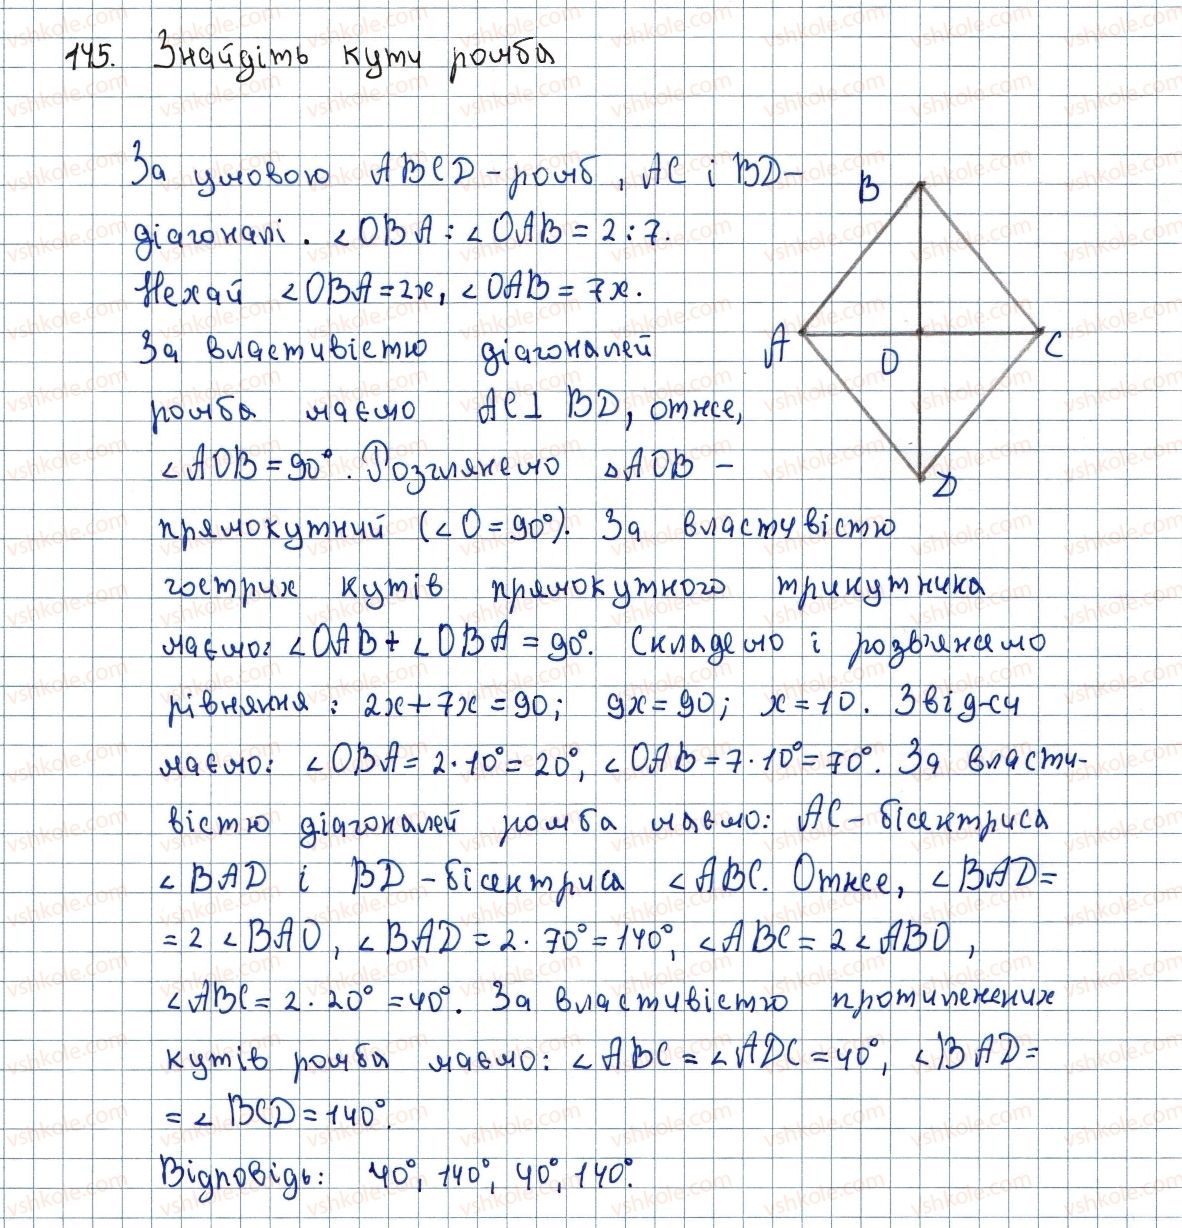 145. Знайдіть кути ромба
За умовою ABCD - ромб, AC і BD -
діагоналі. ∠OBA : ∠OAB = 2 : 7.
Нехай ∠OBA = 2x, ∠OAB = 7x.
За властивістю діагоналей
ромба маємо AC⊥BD, отже,
∠AOB = 90°. Розглянемо △AOB -
прямокутний (∠O = 90°). За властивістю
гострих кутів прямокутного трикутника
маємо: ∠OAB + ∠OBA = 90°. Складемо і розв'яжемо
рівняння: 2x + 7x = 90; 9x = 90; x = 10. Звідси
маємо: ∠OBA = 2 · 10° = 20°, ∠OAB = 7 · 10° = 70°. За власти-
вістю діагоналей ромба маємо: AC - бісектриса
∠BAD і BD - бісектриса ∠ABC. Отже, ∠BAD =
= 2 ∠BAO, ∠BAD = 2 · 70° = 140°, ∠ABC = 2∠ABO,
∠ABC = 2 · 20° = 40°. За властивістю протилежних
кутів ромба маємо: ∠ABC = ∠ADC = 40°, ∠BAD =
= ∠BCD = 140°.
Відповідь: 40°, 140°, 40°, 140°.
B
A
O
C
D
vshkole.com